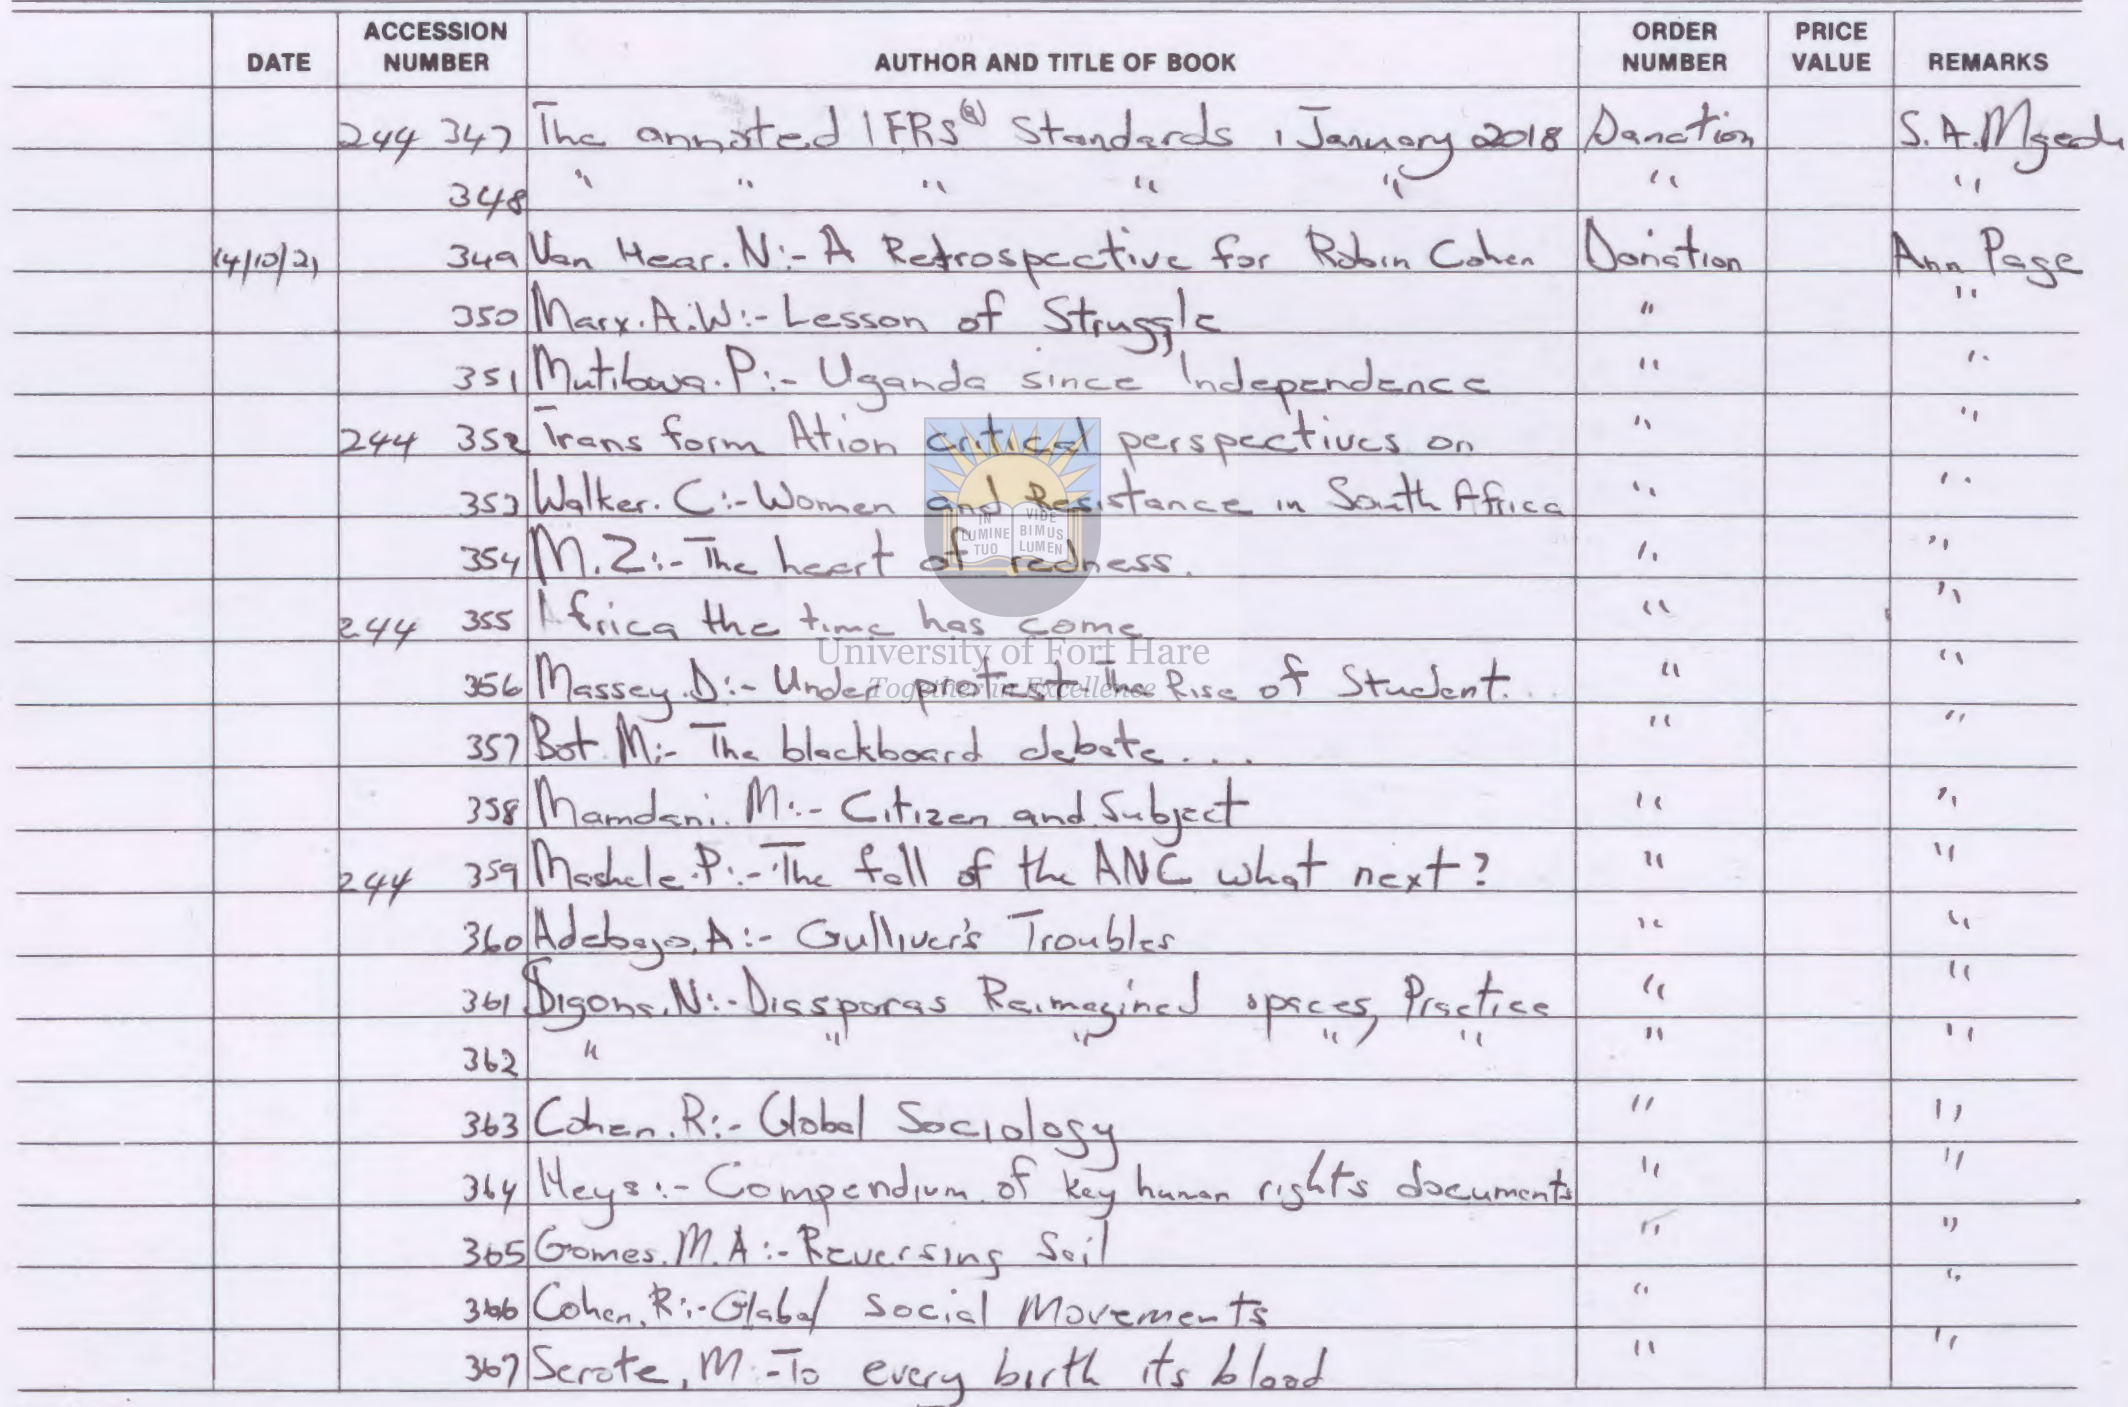 DATE ACCESSION NUMBER AUTHOR AND TITLE OF BOOK ORDER NUMBER PRICE VALUE REMARKS
244 347 The annoted IFRS® Standards 1 January 2018 Donation S. A. Mgedu
348 " " " " " " "
14/10/21 349 Van Hear. N:- A Retrospective for Robin Cohen Donation Ann Page
350 Marx. A.W:- Lesson of Struggle " "
351 Mutibwa. P:- Uganda since Independence " "
244 352 Trans form Ation critical perspectives on " "
353 Walker. C:- Women and Resistance in South Africa " "
354 M. Z:- The heart of redness. " "
244 355 Africa the time has come " "
356 Massey. D:- Under protest The Rise of Student... " "
357 Bot. M:- The blackboard debate.... " "
358 Mamdani. M:- Citizen and Subject " "
244 359 Mashele. P:- The fall of the ANC what next? " "
360 Adebajo, A:- Gulliver's Troubles " "
361 Digona. N:- Diasporas Reimagined spaces, Practice " "
362 " " " " " " "
363 Cohen. R:- Global Sociology " "
364 Heys:- Compendium of key human rights documents " "
365 Gomes. M.A:- Reversing Sail " "
366 Cohen. R:- Global Social Movements " "
367 Serote, M:- To every birth its blood " "
IN LUMINE TUO VIDE BIMUS LUMEN
University of Fort Hare
Together in Excellence